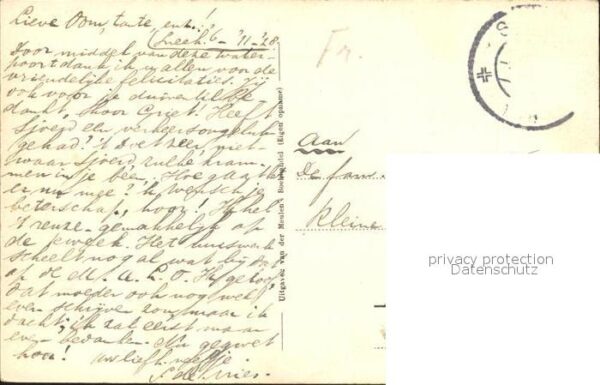 Lieve Oom, tante, enz.!
Leek 6-'11-'28.
Door middel van deze water-
poort dank ik u allen voor de
vriendelijke felicitaties. Jij
ook voor je duivertilbbe
dankt, hoor Griet! Heeft
Sjoerd een verkeersongeluk
gehad? 't doet zeer, niet-
waar Sjoerd, zulke kram-
men in je been. Hoe gaat het
er nu mee? 'k wensch je
beterschap, hoor! Ik heb
't reuze-gemakkelijk op
de kweek. Het huiswerk
scheelt nogal wat bij dat
op de M.U.L.O. Ik geloof,
dat moeder ook nog wel
even schrijven zou, maar ik
dacht, ik zal eerst maar
even bedanken. Nu gegroet
hoor!
uw liefh. neefje
S. de Vries.
Uitgave van der Meulen's Boekhandel (Eigen opname)
Fr.
Aan
De fam.
Kleine
privacy protection
Datenschutz